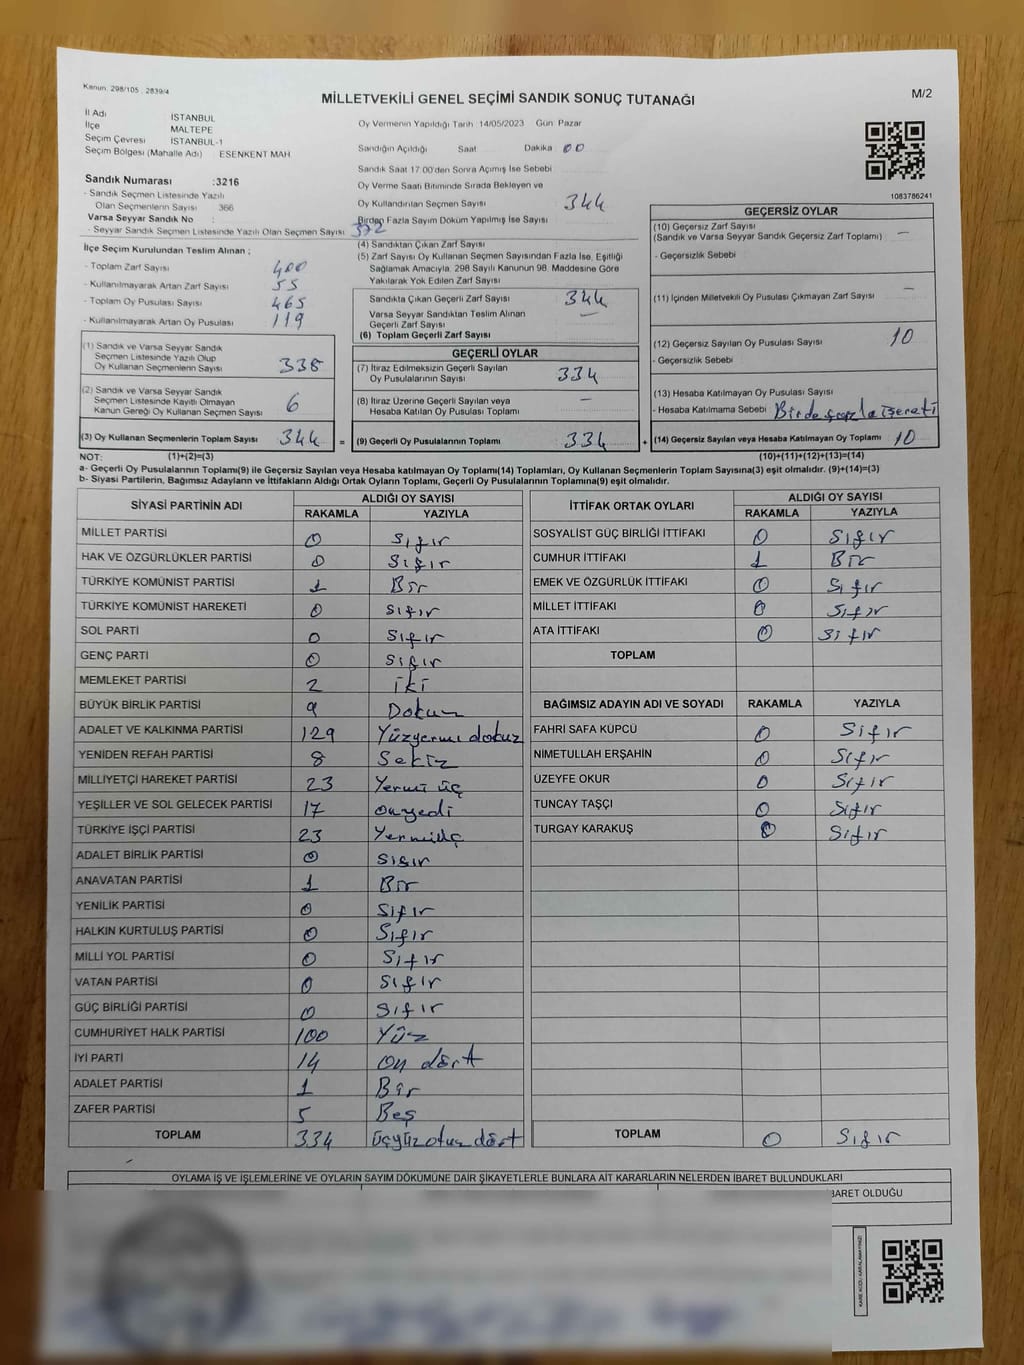 Kanun, 298/105, 2839/4
MİLLETVEKİLİ GENEL SEÇİMİ SANDIK SONUÇ TUTANAĞI
M/2
İl Adı İSTANBUL
İlçe MALTEPE
Seçim Çevresi İSTANBUL-1
Seçim Bölgesi (Mahalle Adı) ESENKENT MAH
Oy Vermenin Yapıldığı Tarih 14/05/2023 Gün Pazar
Sandığın Açıldığı Saat Dakika 00
Sandık Saat 17.00'den Sonra Açımış İse Sebebi
Oy Verme Saati Bitiminde Sırada Bekleyen ve
Oy Kullandırılan Seçmen Sayısı 344
Birden Fazla Sayım Döküm Yapılmış İse Sayısı
1083786241
Sandık Numarası :3216
- Sandık Seçmen Listesinde Yazılı
Olan Seçmenlerin Sayısı 366
Varsa Seyyar Sandık No :
- Seyyar Sandık Seçmen Listesinde Yazılı Olan Seçmen Sayısı 372
İlçe Seçim Kurulundan Teslim Alınan ;
- Toplam Zarf Sayısı 400
- Kullanılmayarak Artan Zarf Sayısı 55
- Toplam Oy Pusulası Sayısı 465
- Kullanılmayarak Artan Oy Pusulası 119
(1) Sandık ve Varsa Seyyar Sandık
Seçmen Listesinde Yazılı Olup
Oy Kullanan Seçmenlerin Sayısı 338
(2) Sandık ve Varsa Seyyar Sandık
Seçmen Listesinde Kayıtlı Olmayan
Kanun Gereği Oy Kullanan Seçmen Sayısı 6
(3) Oy Kullanan Seçmenlerin Toplam Sayısı 344 =
(4) Sandıktan Çıkan Zarf Sayısı
(5) Zarf Sayısı Oy Kullanan Seçmen Sayısından Fazla İse, Eşitliği
Sağlamak Amacıyla, 298 Sayılı Kanunun 98. Maddesine Göre
Yakılarak Yok Edilen Zarf Sayısı
Sandıkta Çıkan Geçerli Zarf Sayısı 344
Varsa Seyyar Sandıktan Teslim Alınan
Geçerli Zarf Sayısı —
(6) Toplam Geçerli Zarf Sayısı
GEÇERLİ OYLAR
(7) İtiraz Edilmeksizin Geçerli Sayılan
Oy Pusulalarının Sayısı 334
(8) İtiraz Üzerine Geçerli Sayılan veya
Hesaba Katılan Oy Pusulası Toplamı —
(9) Geçerli Oy Pusulalarının Toplamı 334 +
GEÇERSİZ OYLAR
(10) Geçersiz Zarf Sayısı
(Sandık ve Varsa Seyyar Sandık Geçersiz Zarf Toplamı) —
- Geçersizlik Sebebi
(11) İçinden Milletvekili Oy Pusulası Çıkmayan Zarf Sayısı —
(12) Geçersiz Sayılan Oy Pusulası Sayısı 10
- Geçersizlik Sebebi
(13) Hesaba Katılmayan Oy Pusulası Sayısı
- Hesaba Katılmama Sebebi Birde fazla işereti
(14) Geçersiz Sayılan veya Hesaba Katılmayan Oy Toplamı 10
NOT: (1)+(2)=(3) (10)+(11)+(12)+(13)=(14)
a- Geçerli Oy Pusulalarının Toplamı(9) ile Geçersiz Sayılan veya Hesaba katılmayan Oy Toplamı(14) Toplamları, Oy Kullanan Seçmenlerin Toplam Sayısına(3) eşit olmalıdır. (9)+(14)=(3)
b- Siyasi Partilerin, Bağımsız Adayların ve İttifakların Aldığı Ortak Oyların Toplamı, Geçerli Oy Pusulalarının Toplamına(9) eşit olmalıdır.
SİYASİ PARTİNİN ADI ALDIĞI OY SAYISI
RAKAMLA YAZIYLA
MİLLET PARTİSİ 0 Sıfır
HAK VE ÖZGÜRLÜKLER PARTİSİ 0 Sıfır
TÜRKİYE KOMÜNİST PARTİSİ 1 Bir
TÜRKİYE KOMÜNİST HAREKETİ 0 Sıfır
SOL PARTİ 0 Sıfır
GENÇ PARTİ 0 Sıfır
MEMLEKET PARTİSİ 2 İki
BÜYÜK BİRLİK PARTİSİ 9 Dokuz
ADALET VE KALKINMA PARTİSİ 129 Yüzyermi dokuz
YENİDEN REFAH PARTİSİ 8 Sekiz
MİLLİYETÇİ HAREKET PARTİSİ 23 Yermi üç
YEŞİLLER VE SOL GELECEK PARTİSİ 17 onyedi
TÜRKİYE İŞÇİ PARTİSİ 23 Yermiüç
ADALET BİRLİK PARTİSİ 0 Sıfır
ANAVATAN PARTİSİ 1 Bir
YENİLİK PARTİSİ 0 Sıfır
HALKIN KURTULUŞ PARTİSİ 0 Sıfır
MİLLİ YOL PARTİSİ 0 Sıfır
VATAN PARTİSİ 0 Sıfır
GÜÇ BİRLİĞİ PARTİSİ 0 Sıfır
CUMHURİYET HALK PARTİSİ 100 Yüz
İYİ PARTİ 14 On dört
ADALET PARTİSİ 1 Bir
ZAFER PARTİSİ 5 Beş
TOPLAM 334 üçyüzotuz dört
İTTİFAK ORTAK OYLARI ALDIĞI OY SAYISI
RAKAMLA YAZIYLA
SOSYALİST GÜÇ BİRLİĞİ İTTİFAKI 0 Sıfır
CUMHUR İTTİFAKI 1 Bir
EMEK VE ÖZGÜRLÜK İTTİFAKI 0 Sıfır
MİLLET İTTİFAKI 0 Sıfır
ATA İTTİFAKI 0 Sıfır
TOPLAM
BAĞIMSIZ ADAYIN ADI VE SOYADI RAKAMLA YAZIYLA
FAHRİ SAFA KÜPCÜ 0 Sıfır
NİMETULLAH ERŞAHİN 0 Sıfır
ÜZEYFE OKUR 0 Sıfır
TUNCAY TAŞÇI 0 Sıfır
TURGAY KARAKUŞ 0 Sıfır
TOPLAM 0 Sıfır
OYLAMA İŞ VE İŞLEMLERİNE VE OYLARIN SAYIM DÖKÜMÜNE DAİR ŞİKAYETLERLE BUNLARA AİT KARARLARIN NELERDEN İBARET BULUNDUKLARI
BARET OLDUĞU
KARE KODU KARALAMAYINIZ!